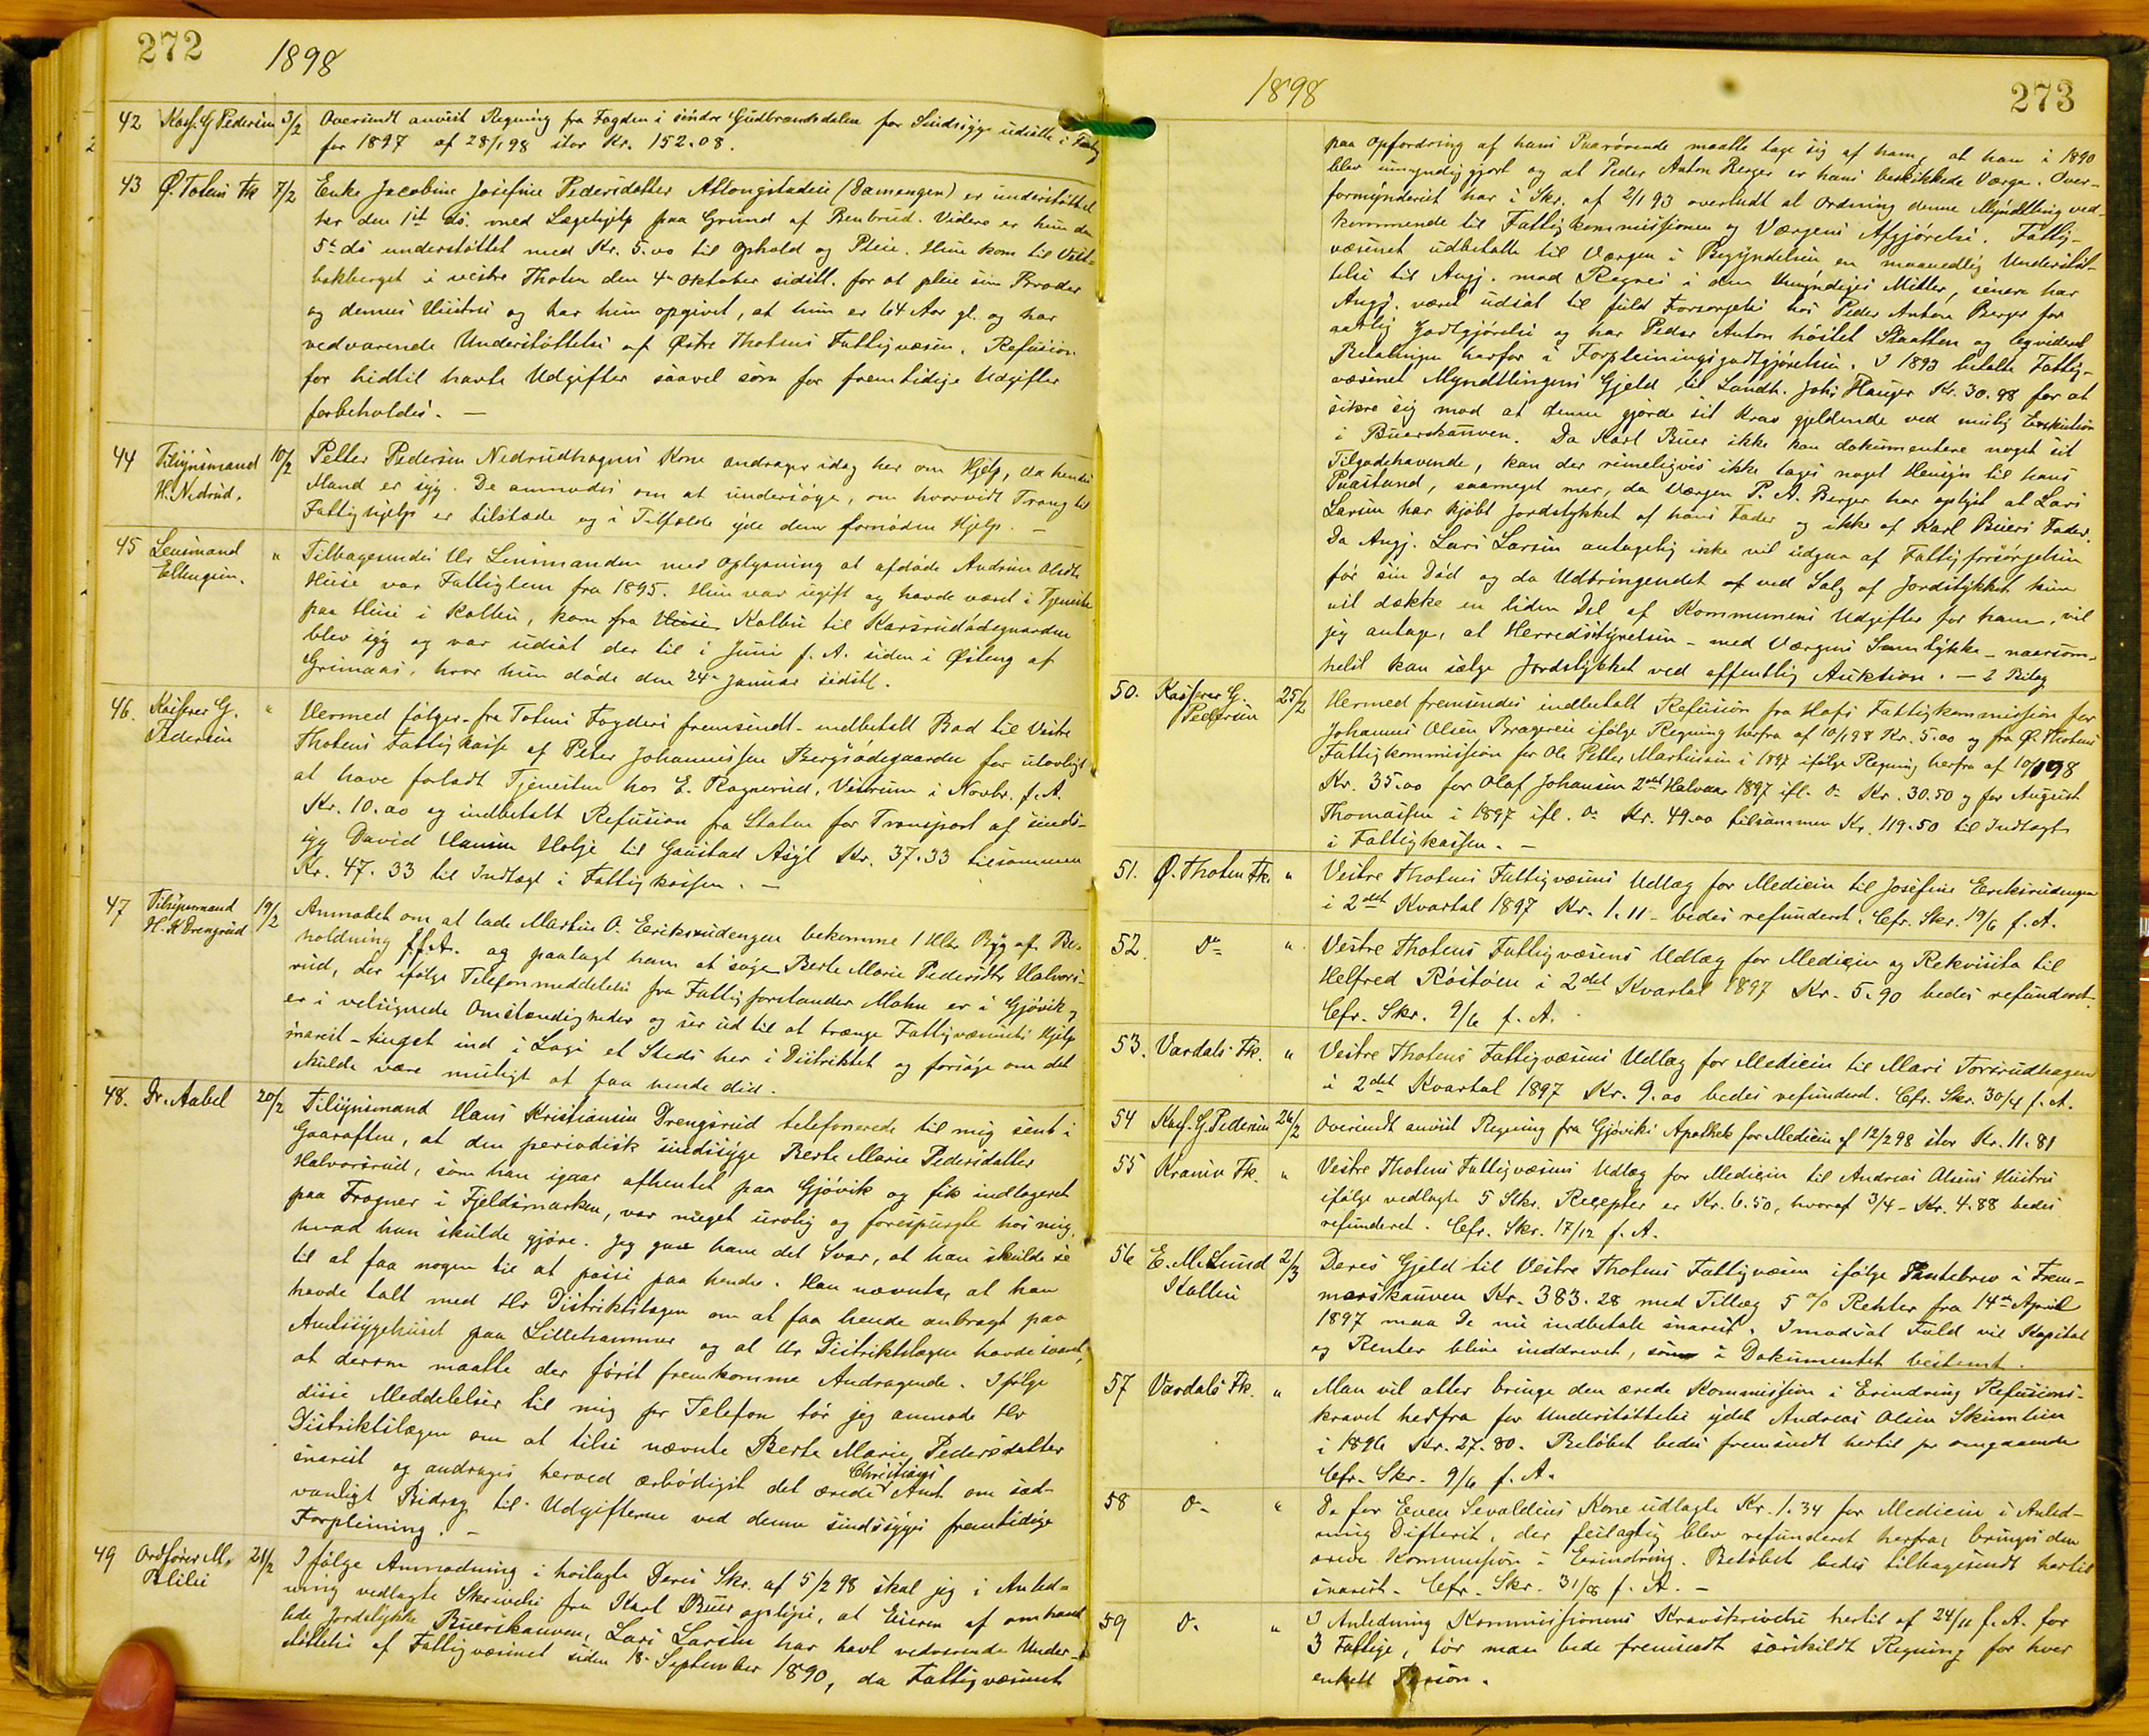 272 1898
42 Kass. G Pedersen 3/2 Oversendt anvist Regning fra Fogden i søndre Gudbrandsdalen for Sindssyge udsatte i
for 1897 af 28/1 98 stor Kr. 152.08.
43 Ø. Totens Fk 7/2 Enke Jacobine Josefine Pedersdatter Allongstadeie (Damengen) er understøttet
her den 1ste ds. med Lægehjelp paa Grund af Benbrud. Videre er hun den
5te ds understøttet med Kr. 5.00 til Ophold og Pleie. Hun kom til
i vestre Thoten den 4de Oktober sidstl. for at pleie sin Broder
og dennes Hustru og har hun opgivet, at hun er 64 Aar gl. og har
vedvarende Understøttelse af Østre Thotens Fattigvæsen. Refusion
for hidtil havte Udgifter saavel som for fremtidige Udgifter
forbeholdes. —
44 Tilsynsmand 10/2 Petter Pedersen Nedrudhagens Kone andrager idag her om Hjelp, da hendes
H. Nedrud. Mand er syg. De anmodes om at undersøge, om hvorvidt Trang til
Fattighjelp er tilstæde og i Tilfælde yde dem fornøden Hjelp. —
45 Lensmand " Tilbagesendes Hr Lensmanden med Oplysning at afdøde Andrine Olsdtr
Ellengsen. Huse var Fattiglem fra 1895. Hun var ugift og havde været i Tjeneste
paa Huse i Kolbu, kom fra Huse Kolbu til Karsrudødegaarden
blev syg og var udsat der til i Juni f. A. siden i Østeng af
Grimaas, hvor hun døde den 24de Januar sidstl.
46. Kasserer G. " Hermed følger fra Totens Fogderi fremsendt indbetalt Bod til Vestre
Pedersen Thotens Fattigkasse af Peter Johannessen Bergsødegaarden for ulovligt
at have forladt Tjenesten hos E. Ragnerud, Vestrum i Novbr. f. A.
Kr. 10.00 og indbetalt Refusion fra Staten for Transport af sinds-
syg David Hansen Holje til Gaustad Asyl Kr. 37.33 tilsammen
Kr. 47.33 til Indtægt i Fattigkassen. —
47 Tilsynsmand 19/2 Anmodet om at lade Martin O. Eriksrudengen bekomme 1 Hltr Byg af Be-
H. K Drengsrud holdning f f. A. og paalagt ham at søge Berte Marie Pedersdtr Halvors-
rud, der ifølge Telefonmeddelelse fra Fattigforstander Mohn er i Gjøvik og
er i velsignede Omstændigheder og ser ud til at trænge Fattigvæsenets Hjelp
snarest – tingst ind i Logi et Steds her i Distriktet og forsøge om det
skulde være muligt at faa hende did.
48. Dr. Aabel 20/2 Tilsynsmand Hans Kristiansen Drengsrud telefonerede til mig sent i
Gaaraften, at den periodisk sindssyge Berte Marie Pedersdatter
Halvorsrud, som han igaar afhentet paa Gjøvik og fik indlogeret
paa Frogner i Fjeldsmarken, var meget urolig og forespurgte hos mig,
hvad han skulde gjøre. Jeg gav ham det Svar, at han skulde se
til at faa nogen til at passe paa hende. Han nævnte, at han
havde talt med Hr Distriktslægen om at faa hende anbragt paa
Amtssygehuset paa Lillehammer og at Hr Distriktslægen havde svaret,
at derom maatte der først fremkomme Andragende. Ifølge
disse Meddelelser til mig pr Telefon tør jeg anmode Hr
Distriktslægen om at tilse nævnte Berte Marie Pedersdatter
snarest og andrages herved ærbødigst det ærede Christians Amt om sæd-
vanligt Bidrag til Udgifterne ved denne sindssyges fremtidige
Forpleining. —
49 Ordfører M. 21/2 Ifølge Anmodning i høilagte Deres Skr. af 5/2 98 skal jeg i Anled-
Blilie ning vedlagte Skrivelse fra Karl Buer oplyse, at Eieren af omhand-
lede Jordstykke Buerskauven, Lars Larsen har havt vedvarende Under-
støttelse af Fattigvæsenet siden 18. September 1890, da Fattigvæsenet
1898 273
paa Opfordring af hans Paarørende maatte tage sig af ham, at han i 1890
blev umyndiggjort og at Peder Anton Berger er hans beskikkede Værge. Over-
formynderiet har i Skr. af 2/1 93 overladt al Ordning denne Myndtling ved-
kommende til Fattigkommissionen og Værgens Afgjørelse. Fattig-
væsenet udbetalte til Værgen i Begyndelsen en maanedlig Understøt-
telse til Angj. mod Regres i den Umyndiges Midler, senere har
Angj. været udsat til fuld Forsørgelse hos Peder Anton Berger for
aarlig Godtgjørelse og har Peder Anton høstet Slaatten og liqvideret
Betalingen herfor i Forpleiningsgodtgjørelsen. I 1893 betalte Fattig-
væsenet Myndtlingens Gjeld til Landh. Johs Hauger Kr. 30.98 for at
sikre sig mod at denne gjorde sit Krav gjeldende ved mulig Exekution
i Buerskauven. Da Karl Buer ikke kan dokumentere noget sit
Tilgodehavende, kan der rimeligvis ikke tages noget Hensyn til hans
Paastand, saameget mer, da Værgen P. A. Berger har oplyst at Lars
Larsen har kjøbt Jordstykket af hans Fader og ikke af Karl Buers Fader.
Da Angj. Lars Larsen antagelig ikke vil udgaa af Fattigforsørgelsen
før sin Død og da Udbringendet af ved Salg af Jordstykket kun
vil dække en liden Del af Kommunens Udgifter for ham, vil
jeg antage, at Herredsstyrelsen – med Værgens Samtykke – naarsom-
helst kan sælge Jordstykket ved offentlig Auktion. — 2 Bilag
50. Kasserer G. 25/2 Hermed fremsendes indbetalt Refusion fra Hofs Fattigkommission for
Pedersen Johannes Olsen Brageneie ifølge Regning herfra af 10/1 98 Kr. 5.00 og fra Ø. Thotens
Fattigkommission for Ole Petter Martinsen i 1897 ifølge Regning herfra af 10/1 98
Kr. 35.00 for Olaf Johansen 2det Halvaar 1897 ifl. do Kr. 30.50 og for August
Thomassen i 1897 ifl. do Kr. 49.00 tilsammen Kr. 119.50 til Indtægt
i Fattigkassen. —
51. Ø. Thoten Fk. " Vestre Thotens Fattigvæsens Udlæg for Medicin til Josefine Eriksrudengen
i 2det Kvartal 1897 Kr. 1.11 – bedes refunderet. Cfr. Skr. 19/6 f. A.
52. Do " Vestre Thotens Fattigvæsens Udlæg for Medicin og Rekvisita til
Helfred Røstøen i 2det Kvartal 1897 Kr. 5.90 bedes refunderet.
Cfr. Skr. 9/6 f. A.
53. Vardals Fk. " Vestre Thotens Fattigvæsens Udlæg for Medicin til Mari Torsrudhagen
i 2det Kvartal 1897 Kr. 9.00 bedes refunderet. Cfr. Skr. 30/4 f. A.
54 Kass. G. Pedersen 26/2 Oversendt anvist Regning fra Gjøviks Apothek for Medicin af 12/2 98 stor Kr. 11.81
55 Fk. " Vestre Thotens Fattigvæsens Udlæg for Medicin til Andreas Olsens Hustru
ifølge vedlagte 5 Stkr. Recepter er Kr. 6.50, hvoraf 3/4 – Kr. 4.88 bedes
refunderet. Cfr. Skr. 17/12 f. A.
56 E. M. Lund 2/3 Deres Gjeld til Vestre Thotens Fattigvæsen ifølge Pantebrev i Frem-
Kolbu marskauven Kr. 383.28 med Tillæg 5 % Renter fra 14de April
1897 maa De nu indbetale snarest. I modsat Fald vil Kapital
og Renter blive inddrevet, som i Dokumentet bestemt.
57 Vardals Fk. " Man vil atter bringe den ærede Kommission i Erindring Refusions-
kravet herfra for Understøttelse ydet Andreas Olsen Skumlien
i 1896 Kr. 27.80. Beløbet bedes fremsendt hertil pr omgaaende
Cfr. Skr. 9/6 f. A.
58 Do " De for Even Sevaldsens Kone udlagte Kr. 1.34 for Medicin i Anled-
ning Difterit, der feilagtig blev refunderet herfra, bringes den
ærede Kommission i Erindring. Beløbet bedes tilbagesendt hertil
snarest. Cfr. Skr. 31/8 f. A. —
59 Do " I Anledning Kommissionens Kravskrivelse hertil af 24/11 f. A. for
3 Fattige, tør man bede fremsendt særskildt Regning for hver
enkelt Person.